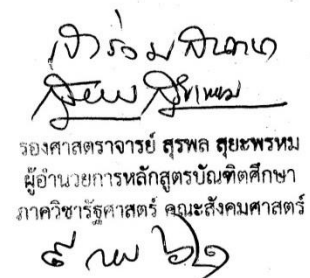 เข้าร่วมสัมมนา
รองศาสตราจารย์ สุรพล สุยะพรหม
ผู้อำนวยการหลักสูตรบัณฑิตศึกษา
ภาควิชารัฐศาสตร์ คณะสังคมศาสตร์
๕ เมย ๖๑